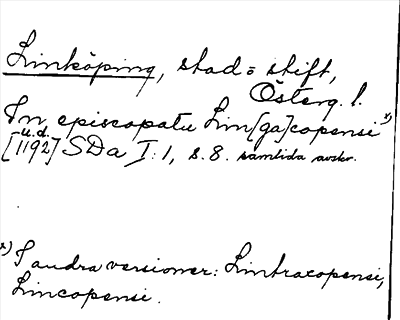 Linköping, stad o stift,
Österg. l.
In episcopatu Lim[ga]copensi x)
[u.d. 1192] SDa I:1, s. 8. samtida avskr.
x) I andra versioner: Lintracopensi,
Lincopensi.